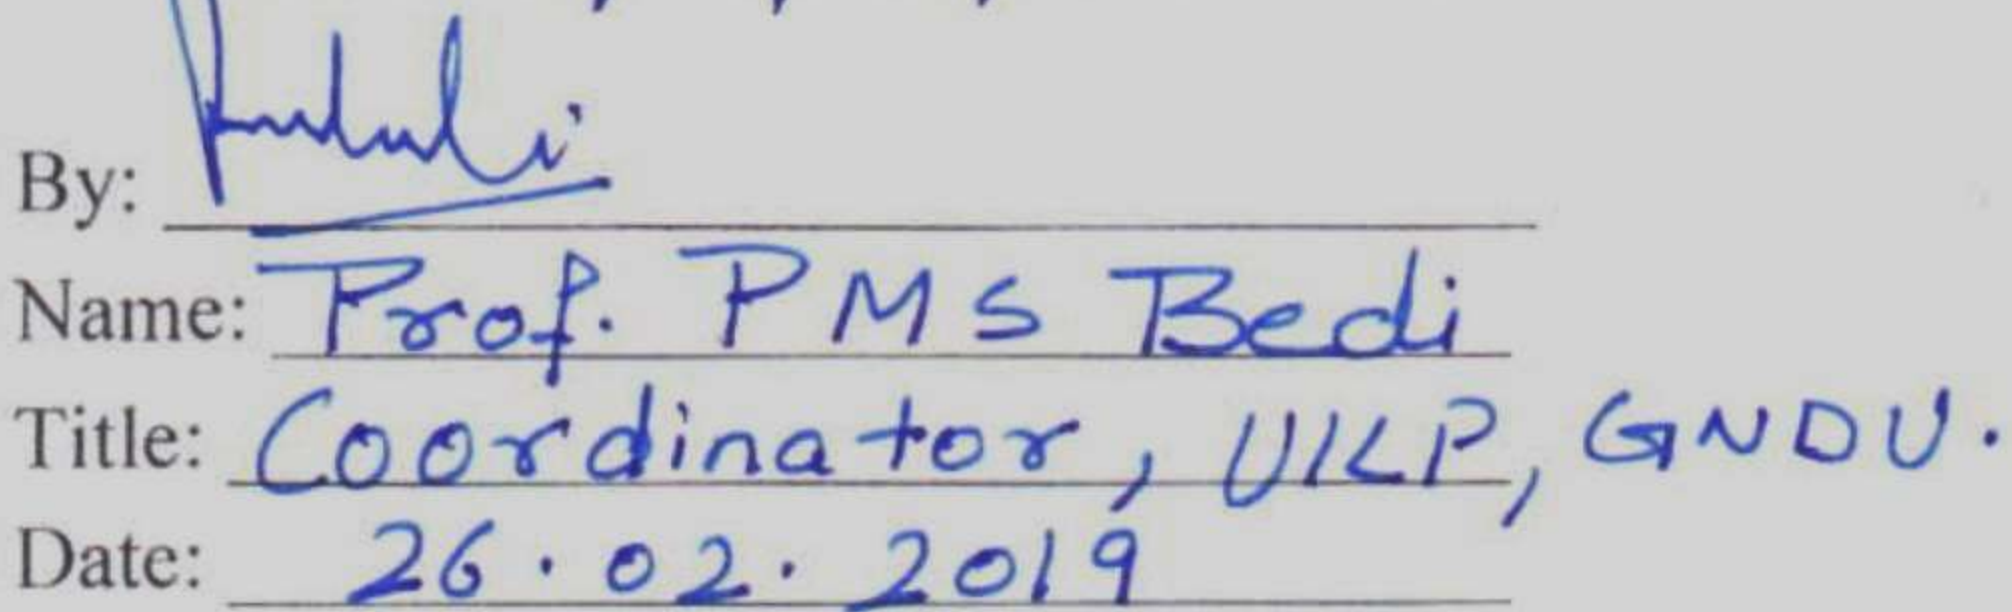 By:
Name: Prof. PMS Bedi
Title: Coordinator, UILP, GNDU.
Date: 26.02.2019